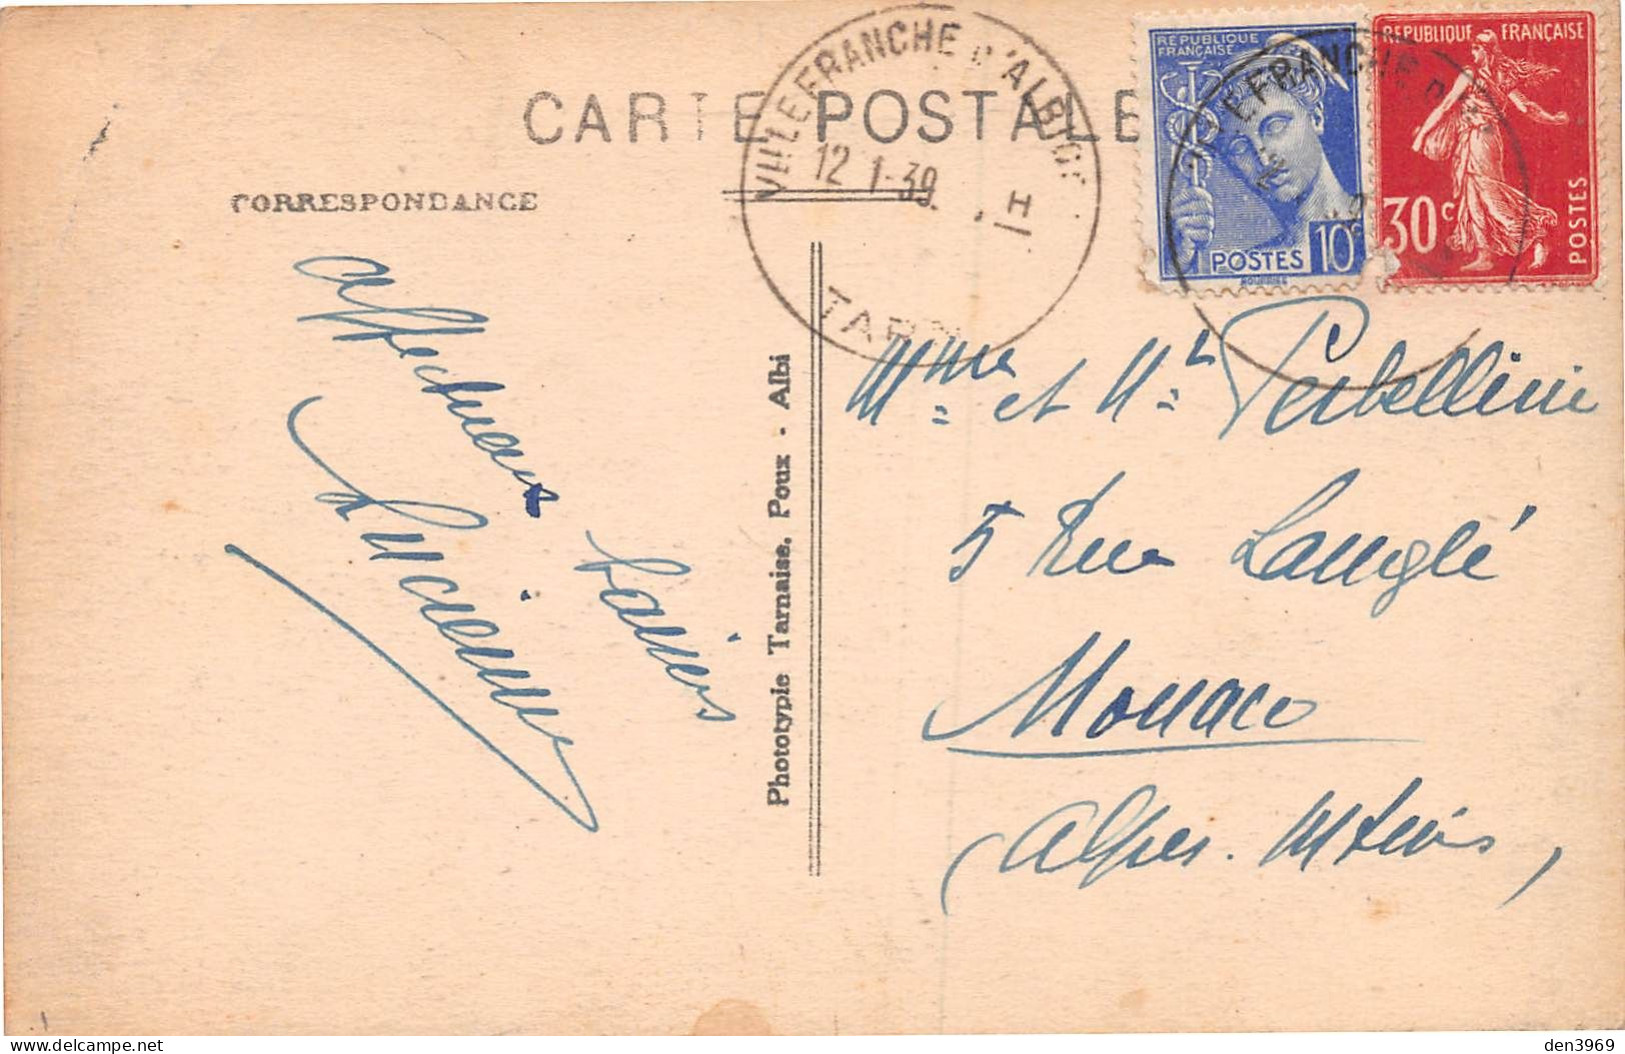 CARTE POSTALE
CORRESPONDANCE
VILLEFRANCHE D'ALBIGEOIS
12 1-39
TARN
RÉPUBLIQUE
FRANÇAISE
POSTES 10c
REPUBLIQUE FRANÇAISE
30c
POSTES
Affectueux
baisers
Lucienne
Phototypie Tarnaise. Poux - Albi
Mme et Mr Perbellini
5 Rue Langlé
Monaco
(Alpes. Mtmes)
den3969